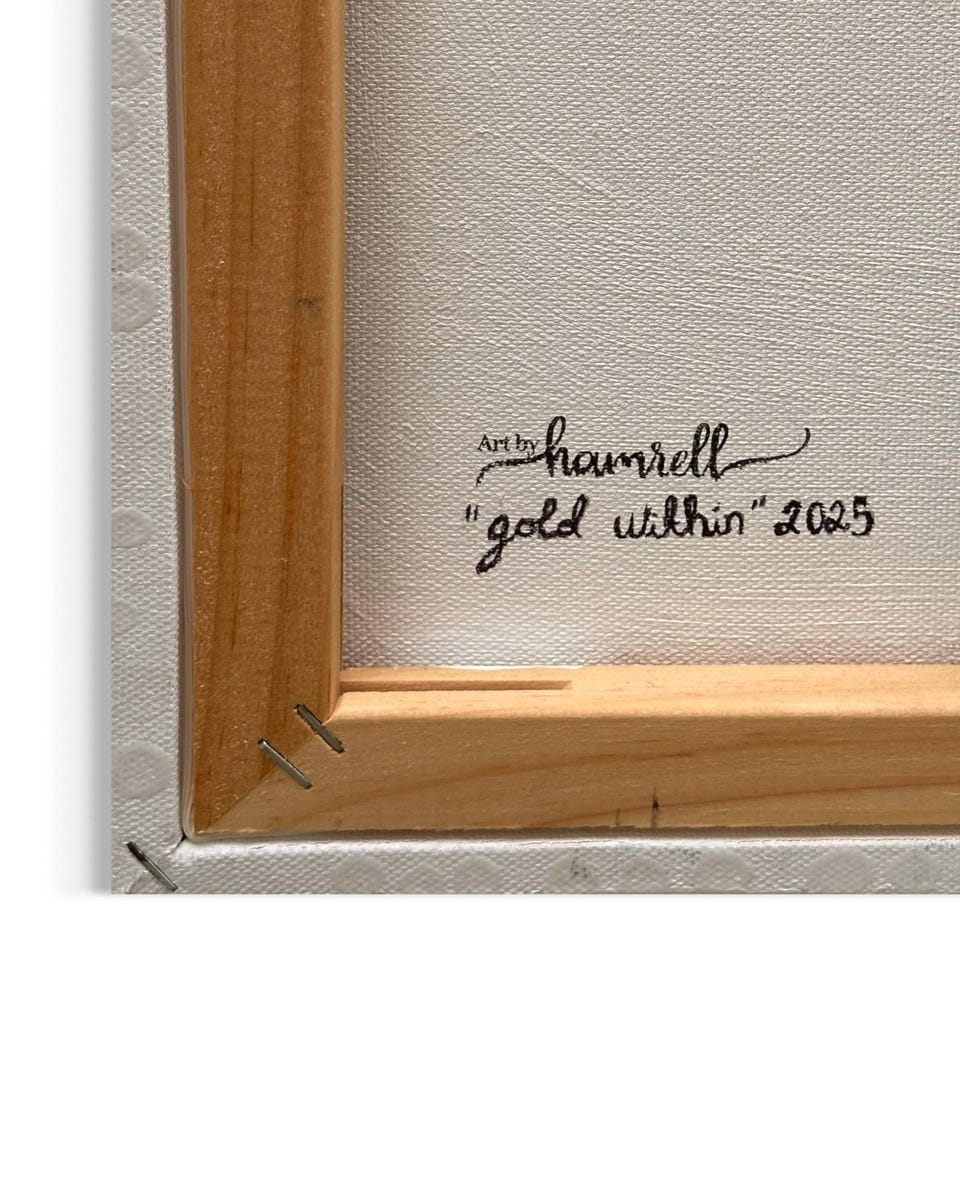 Art by hamrell
"gold within" 2025